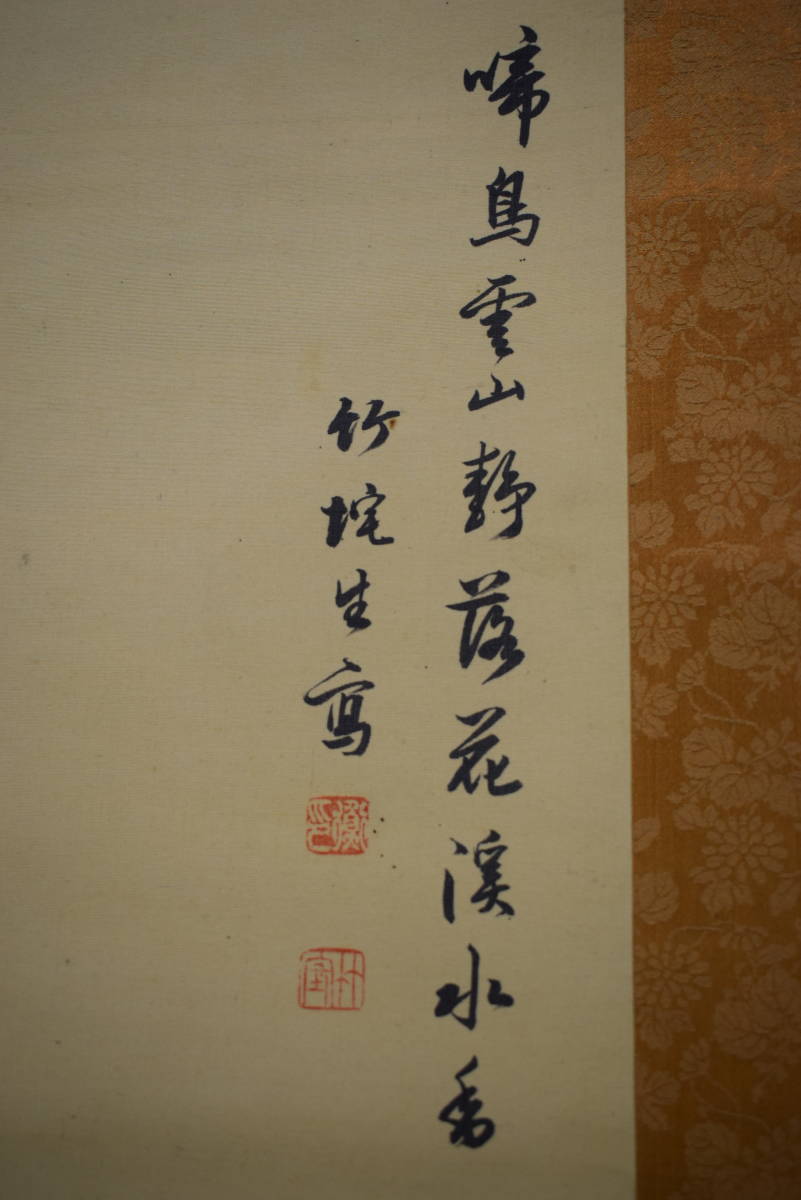 啼鳥雲山靜落花溪水香
竹坨生寫